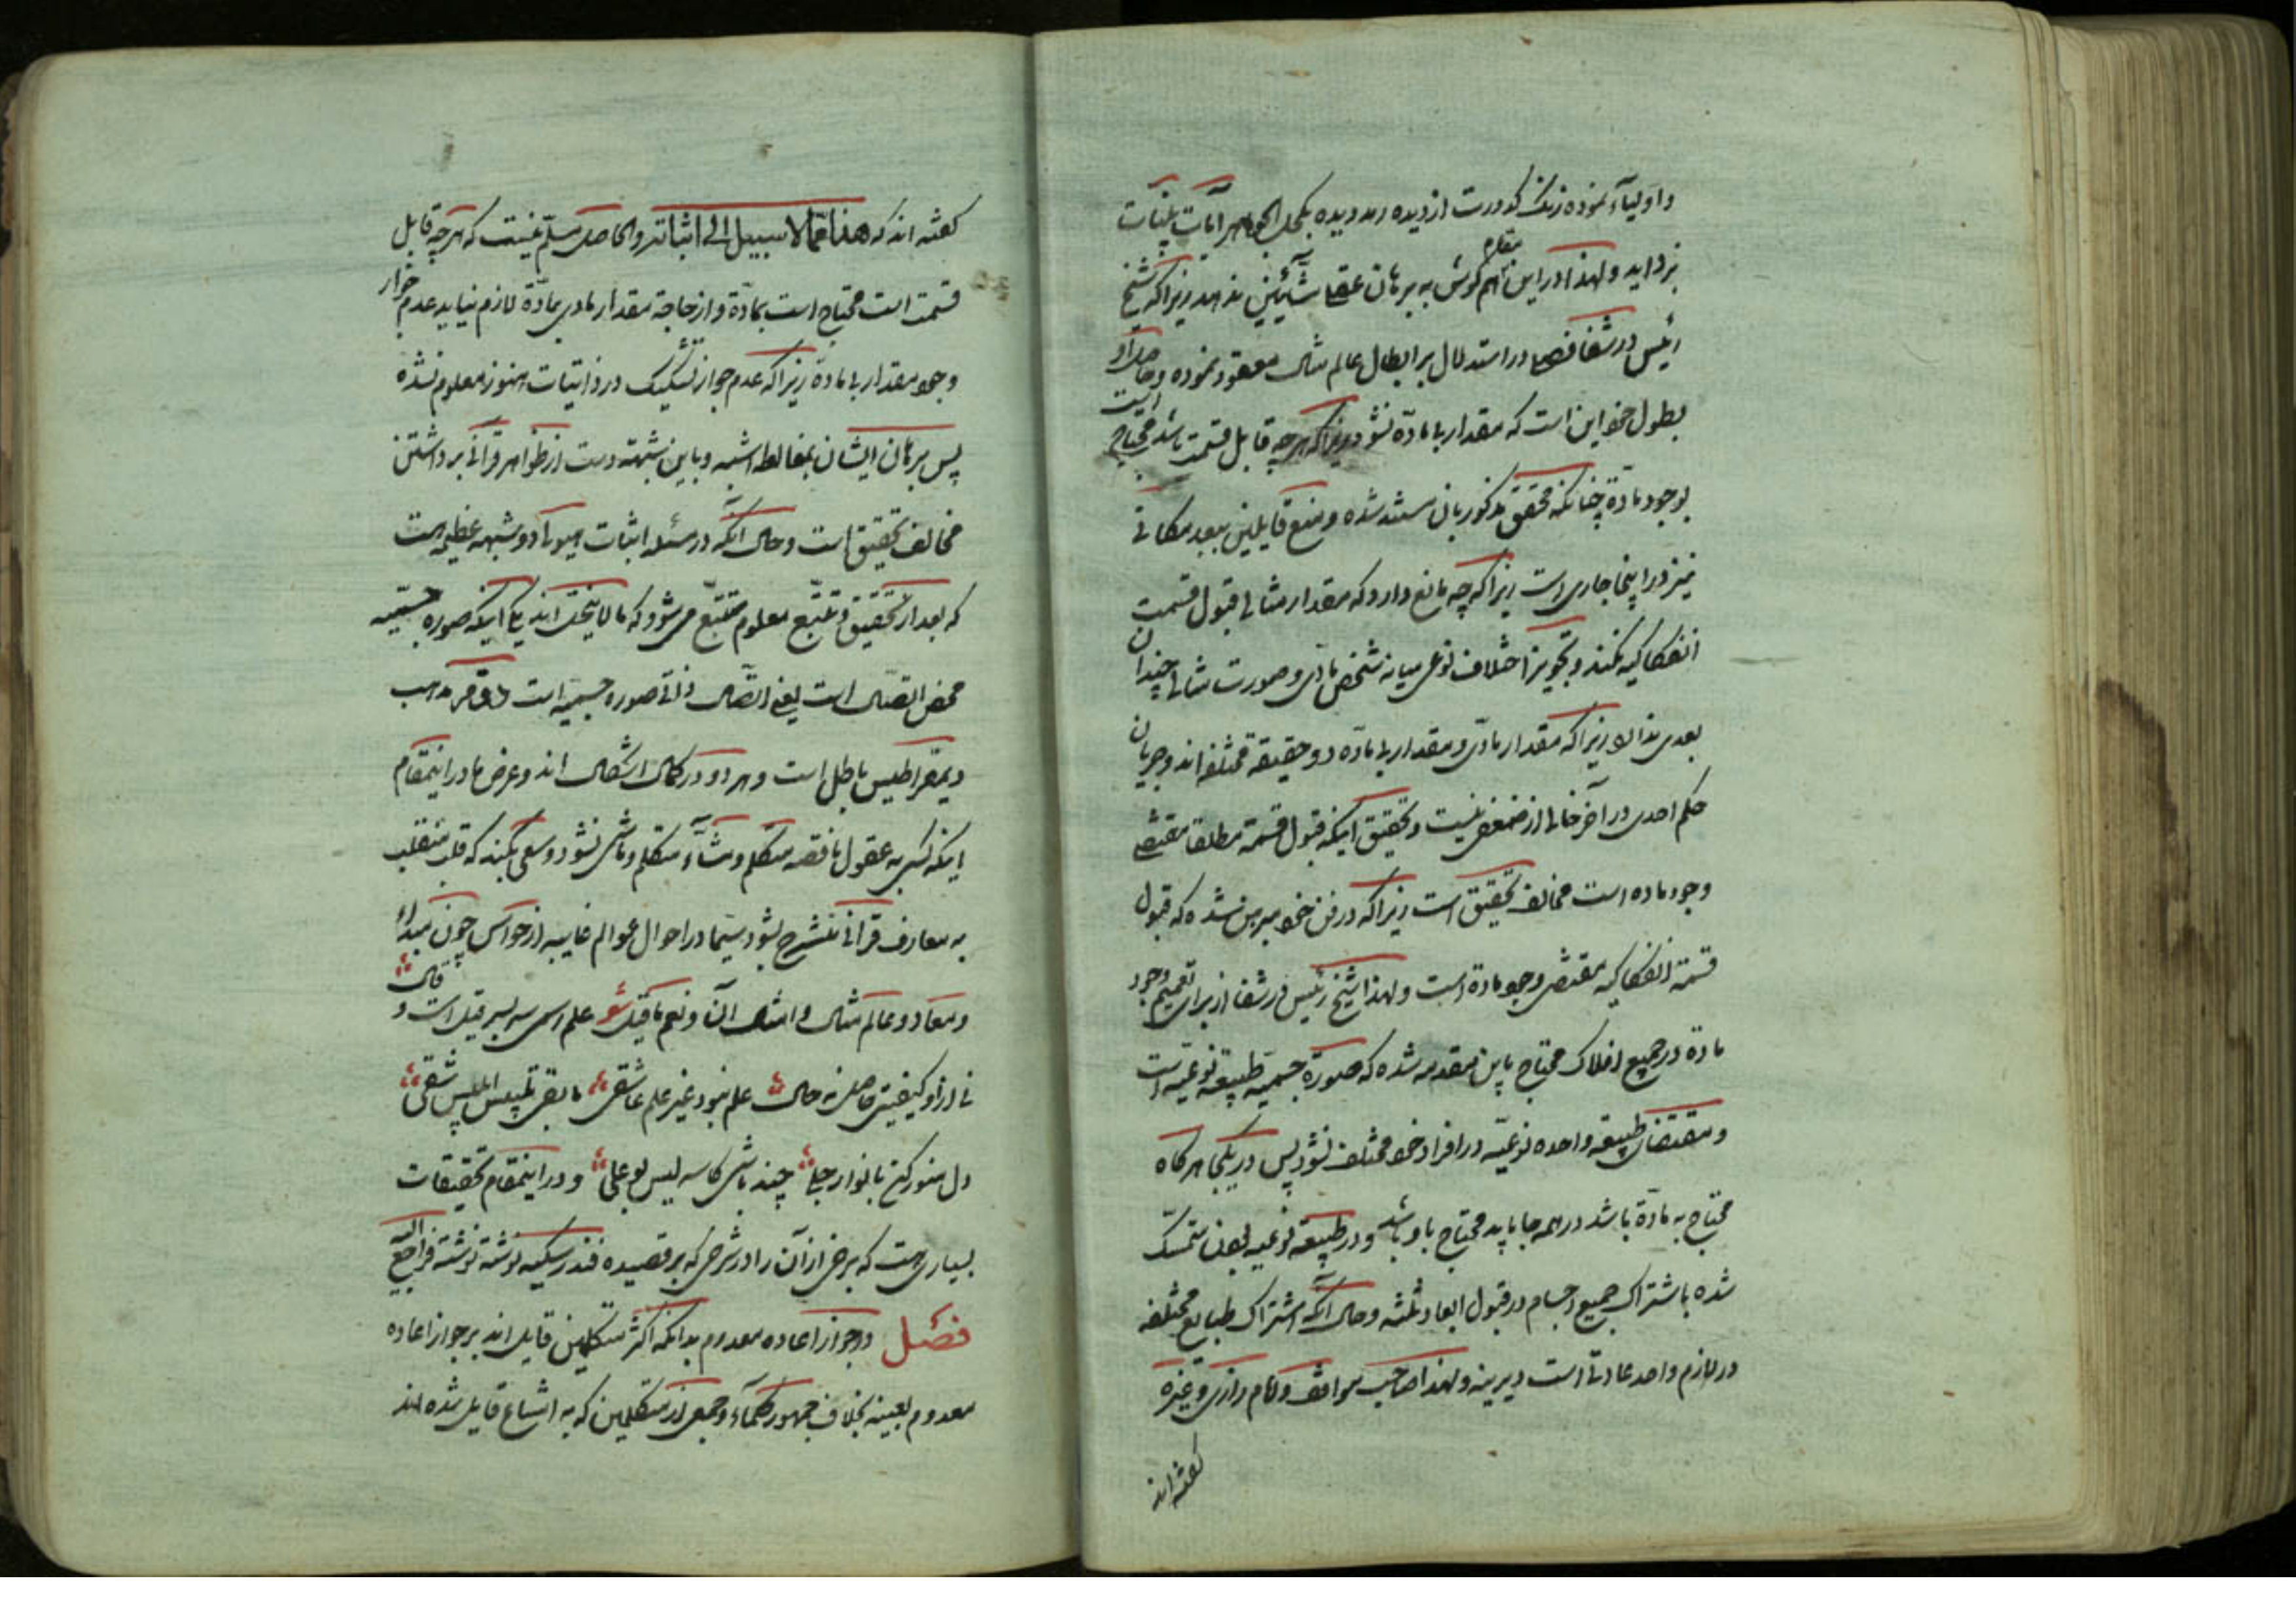 واولیاء نموده زنک کدورت از دیده رمد دیده بکحل الجواهر آیات بینات
بزداید ولهذا در این مقام هم گوش به برهان عقلی مشائین ندهد زیراکه شیخ
رئیس در شفا فصلی در استدلال بر ابطال عالم مثال معقود نموده وحاصل او
بطول خود این است که مقدار بی ماده نشود زیراکه هرچه قابل قسمت باشد محتاج است
بوجود مادة چنانکه محقق مذکور بان مستند شده و منع قایلین ببعد مکانی
نیز در اینجا جاری است زیراکه چه مانع دارد که مقدار مثالی قبول قسمت
انفکاکیه نکند و تجویز اختلاف نوعی میانه شخص مادی و صورت مثالی چندان
بعدی ندارد زیراکه مقدار مادی و مقدار بی ماده دو حقیقة مختلفه اند و جریان
حکم احدی در آخر خالی از ضعفی نیست و تحقیق اینکه قبول قسمة مطلقا مقتضی
وجود ماده است مخالف تحقیق است زیراکه در فن خود مبرهن شده که قبول
قسمة انفکاکیه مقتضی وجود مادة است ولهذا شیخ رئیس در شفا از برای تعمیم وجود
مادة در جمیع افلاک محتاج باین مقدمه شده که صورة جسمیه طبیعة نوعیه است
ومقتضای طبیعة واحده نوعیه در افراد خود مختلف نشود پس در یکجا هرکاه
محتاج به مادة باشد در همه جا باید محتاج باو باشد و در طبیعة نوعیه بودن متمسک
شده باشتراک جمیع اجسام در قبول ابعاد ثلثه وحال آنکه اشتراک طبایع مختلفه
در لازم واحد عادتی است دیرینه ولهذا صاحب مواقف و امام رازی و غیره
کفته اند
کفته اند که هذا مما لا سبیل الی اثباته والحاصل مسلم نیست که هرچه قابل
قسمت است محتاج است بمادة و از حاجة مقدار مادی بمادة لازم نیاید عدم جواز
وجود مقدار بی مادة زیراکه عدم جواز تشکیک در ذاتیات هنوز معلوم نشده
پس برهان ایشان بمغالطه اشبه و باین شبهه دست از ظواهر قرآنی برداشتن
مخالف تحقیق است وحال آنکه در مسئله اثبات هیولی دو شبهه عظیمه هست
که بعد از تحقیق و تتبع معلوم متتبع می شود که مالاینحل اند یکی اینکه صورة جسمیه
محض اتصال است یعنی اتصال ذاتی صورة جسمیه است دوم مذهب
دیمقراطیس باطل است و هر دو در کمال اشکال اند و غرض ما در اینمقام
اینکه کسی به عقول ناقصه متکلم و مشاء متکلم و ماشی نشود و سعی بکند که قلب منقلب
به معارف قرآنی منشرح بشود سیما در احوال عوالم غایبه از حواس چون مبداء
و معاد و عالم مثال و امثال آن و نعم ما قیل شعر علم رسمی سر بسر قیل است و قال
نی از او کیفیتی حاصل نه حال علم نبود غیر علم عاشقی مابقی تلبیس ابلیس شقی
دل منور کن بانوار جلی چند باشی کاسه لیس بوعلی و در اینمقام تحقیقات
بسیاری هست که برخی از آن را در شرحی که بر قصیده فندرسکیه نوشته نوشته فراجع الیه
فصل در جواز اعاده معدوم بدانکه اکثر متکلمین قایل اند بر جواز اعاده
معدوم بعینه بخلاف جمهور حکماء و جمعی از متکلمین که به امتناع قایل شده اند